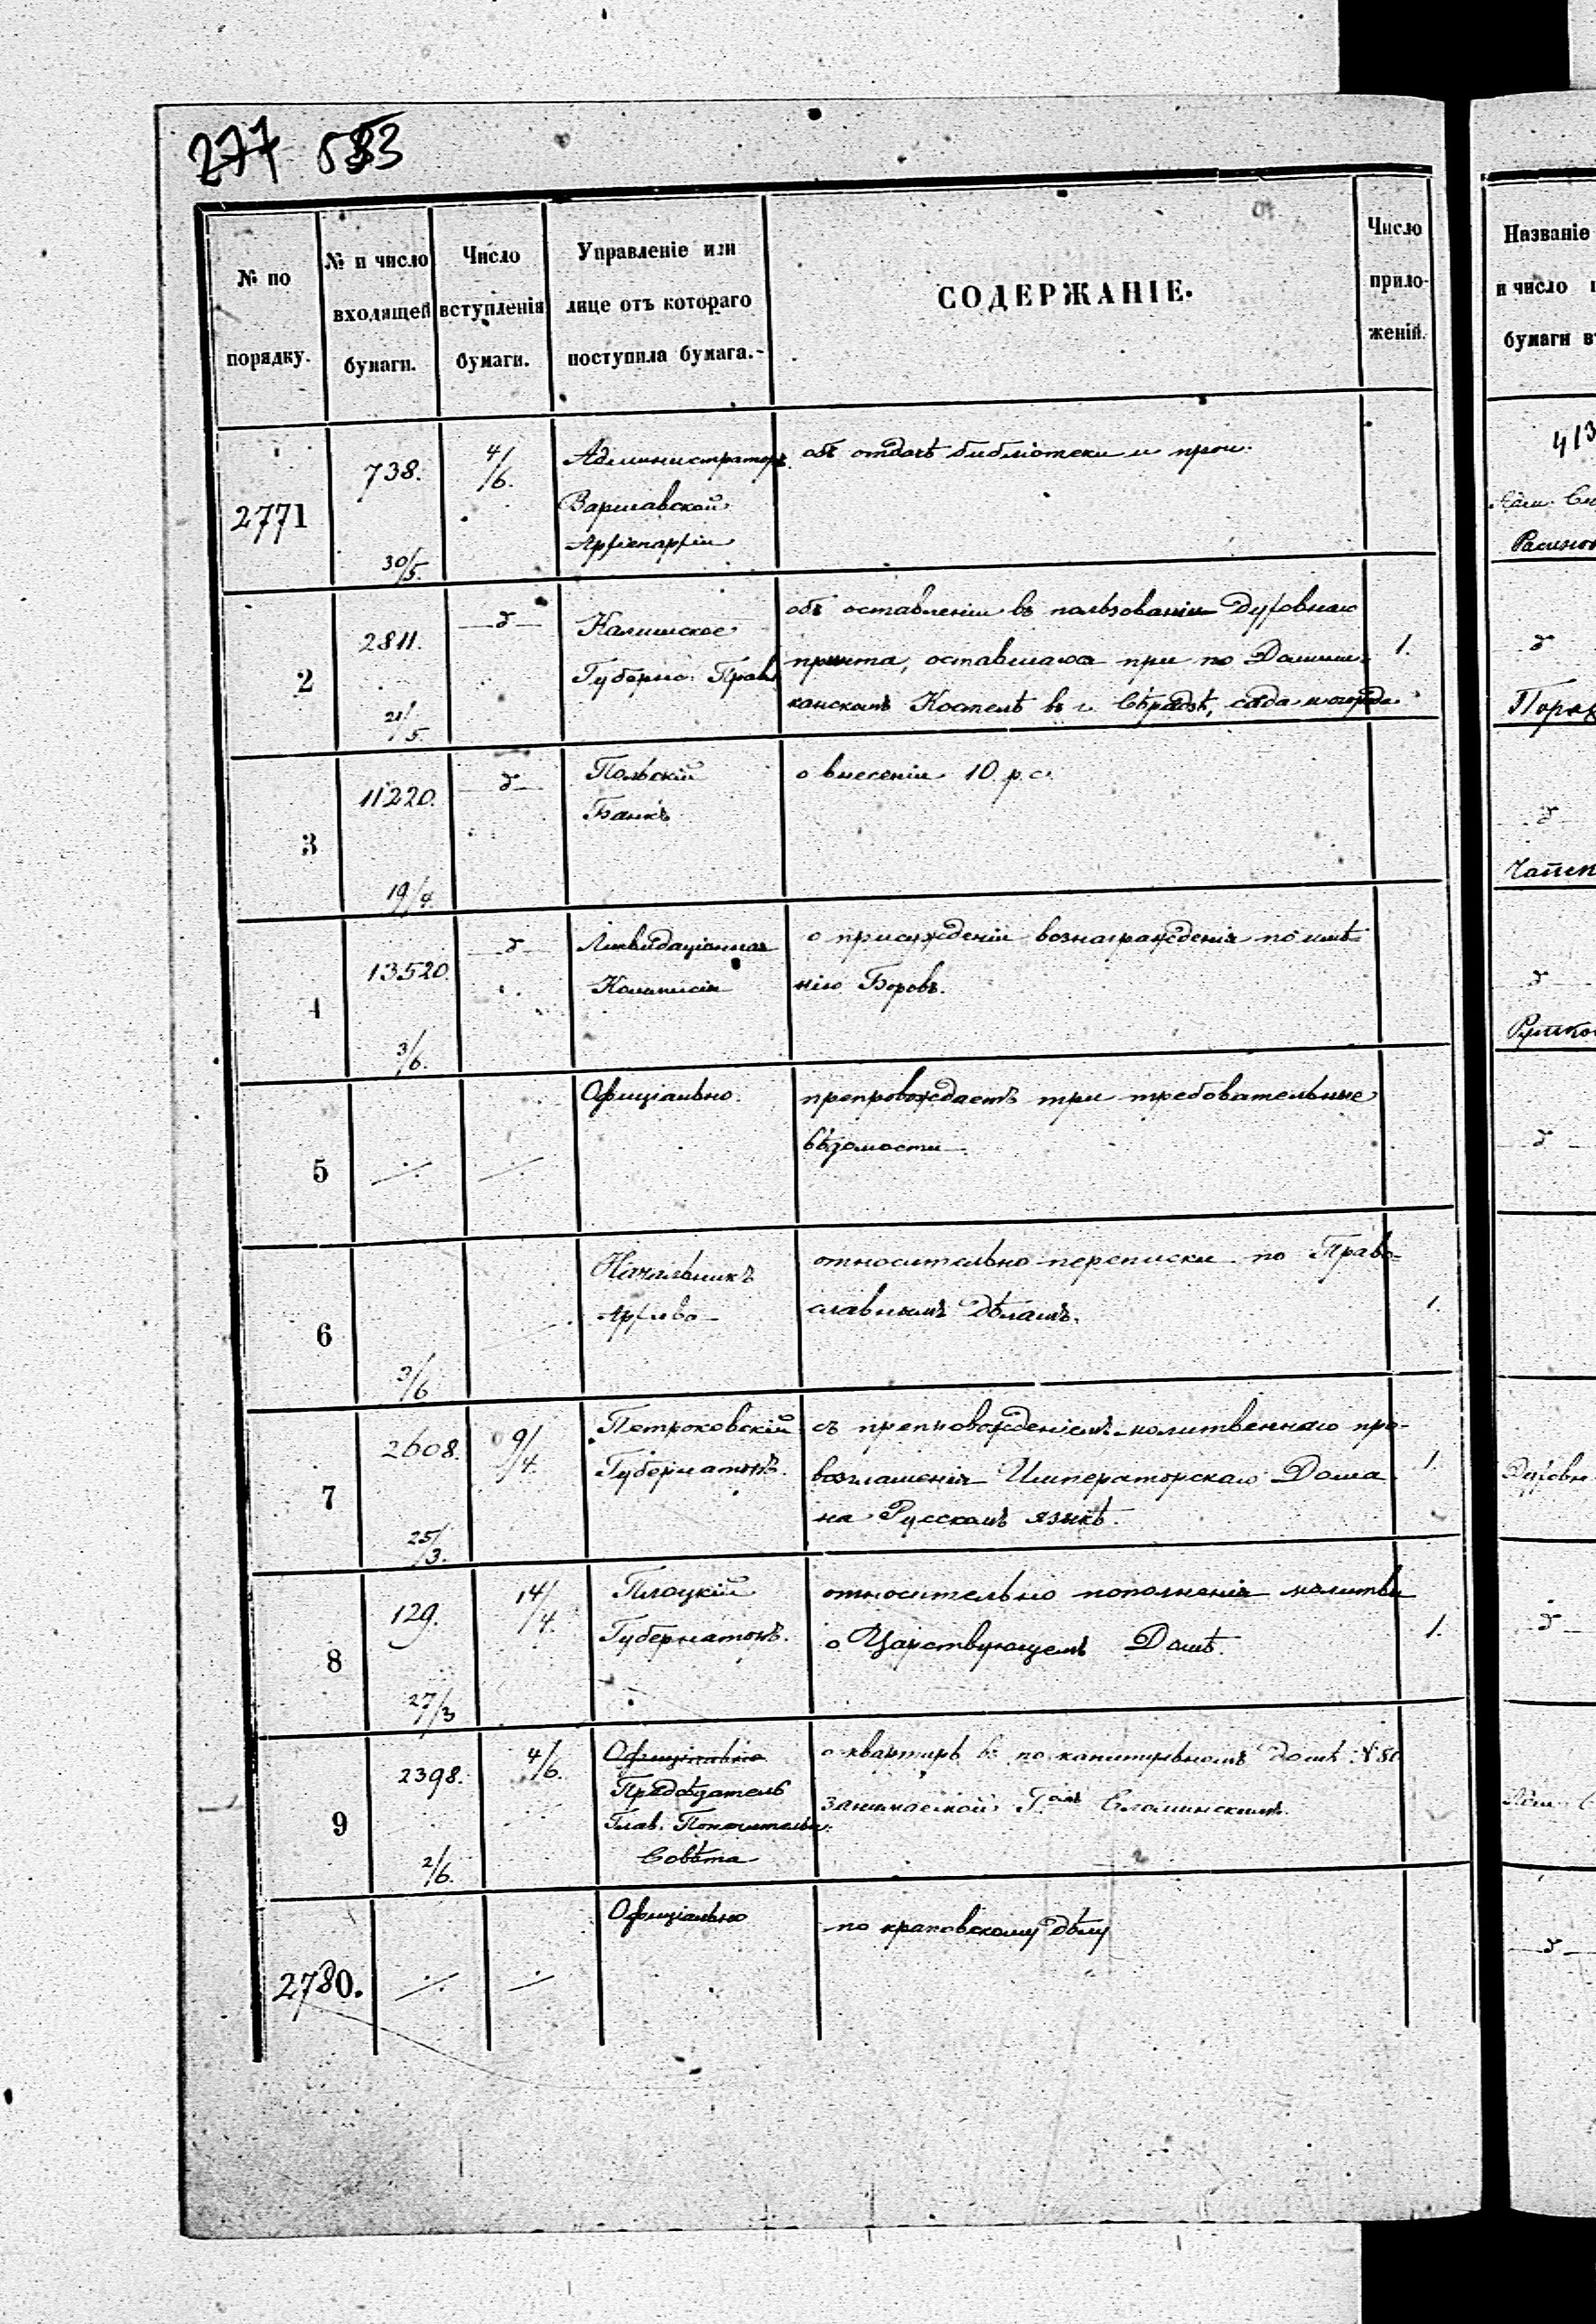 277 583
№ по порядку.
№ и число входящей бумаги.
Число вступленія бумаги.
Управленіе или лице отъ котораго поступила бумага.-
СОДЕРЖАНІЕ.
Число прило- женій.
2771
738.
30/5.
4/6.
Администраторъ
Варшавской
Архіепархіи
объ отдачѣ библіотеки и проч.
2
2811.
21/5.
д
Калишское
Губерно. Прав.
объ оставленіи въ пользованіи Духовнаго
причта, оставшагося при по Домини-
канскомъ Костелѣ въ г. Сѣрадзѣ, сада и огорода
1.
3
11220.
19/4.
д
Польскій
Банкъ
о внесеніи 10 р. с.
4
13520.
3/6.
д
Ликвидаціонная
Коммисія
о присужденіи вознагражденія по имѣ-
нію Боровъ.
5
Офиціально.
препровождаетъ три требовательные
вѣдомости
6
3/6
Начальникъ
Архива
относительно переписки по Право-
славнымъ дѣламъ.
1.
7
2608.
25/3.
9/4.
Петроковскій
Губернаторъ.
съ препровожденіемъ молитвеннаго про-
возглашенія Императорскаго Дома
на Русскомъ языкѣ.
1.
8
129.
27/3
14/4.
Плоцкій
Губернаторъ.
относительно пополненія молитвы
о Царствующемъ Домѣ.
1.
9
2398.
2/6.
4/6.
Офиціально
Предсѣдатель
Глав. Попечительн.
Совѣта
о квартирѣ въ по
домѣ №
занимаемой Г.омъ Сломинскимъ.
2780.
Офиціально
по краковскому дѣлу
Названіе
и число
бумаги
413
д
д
д
д
д
д